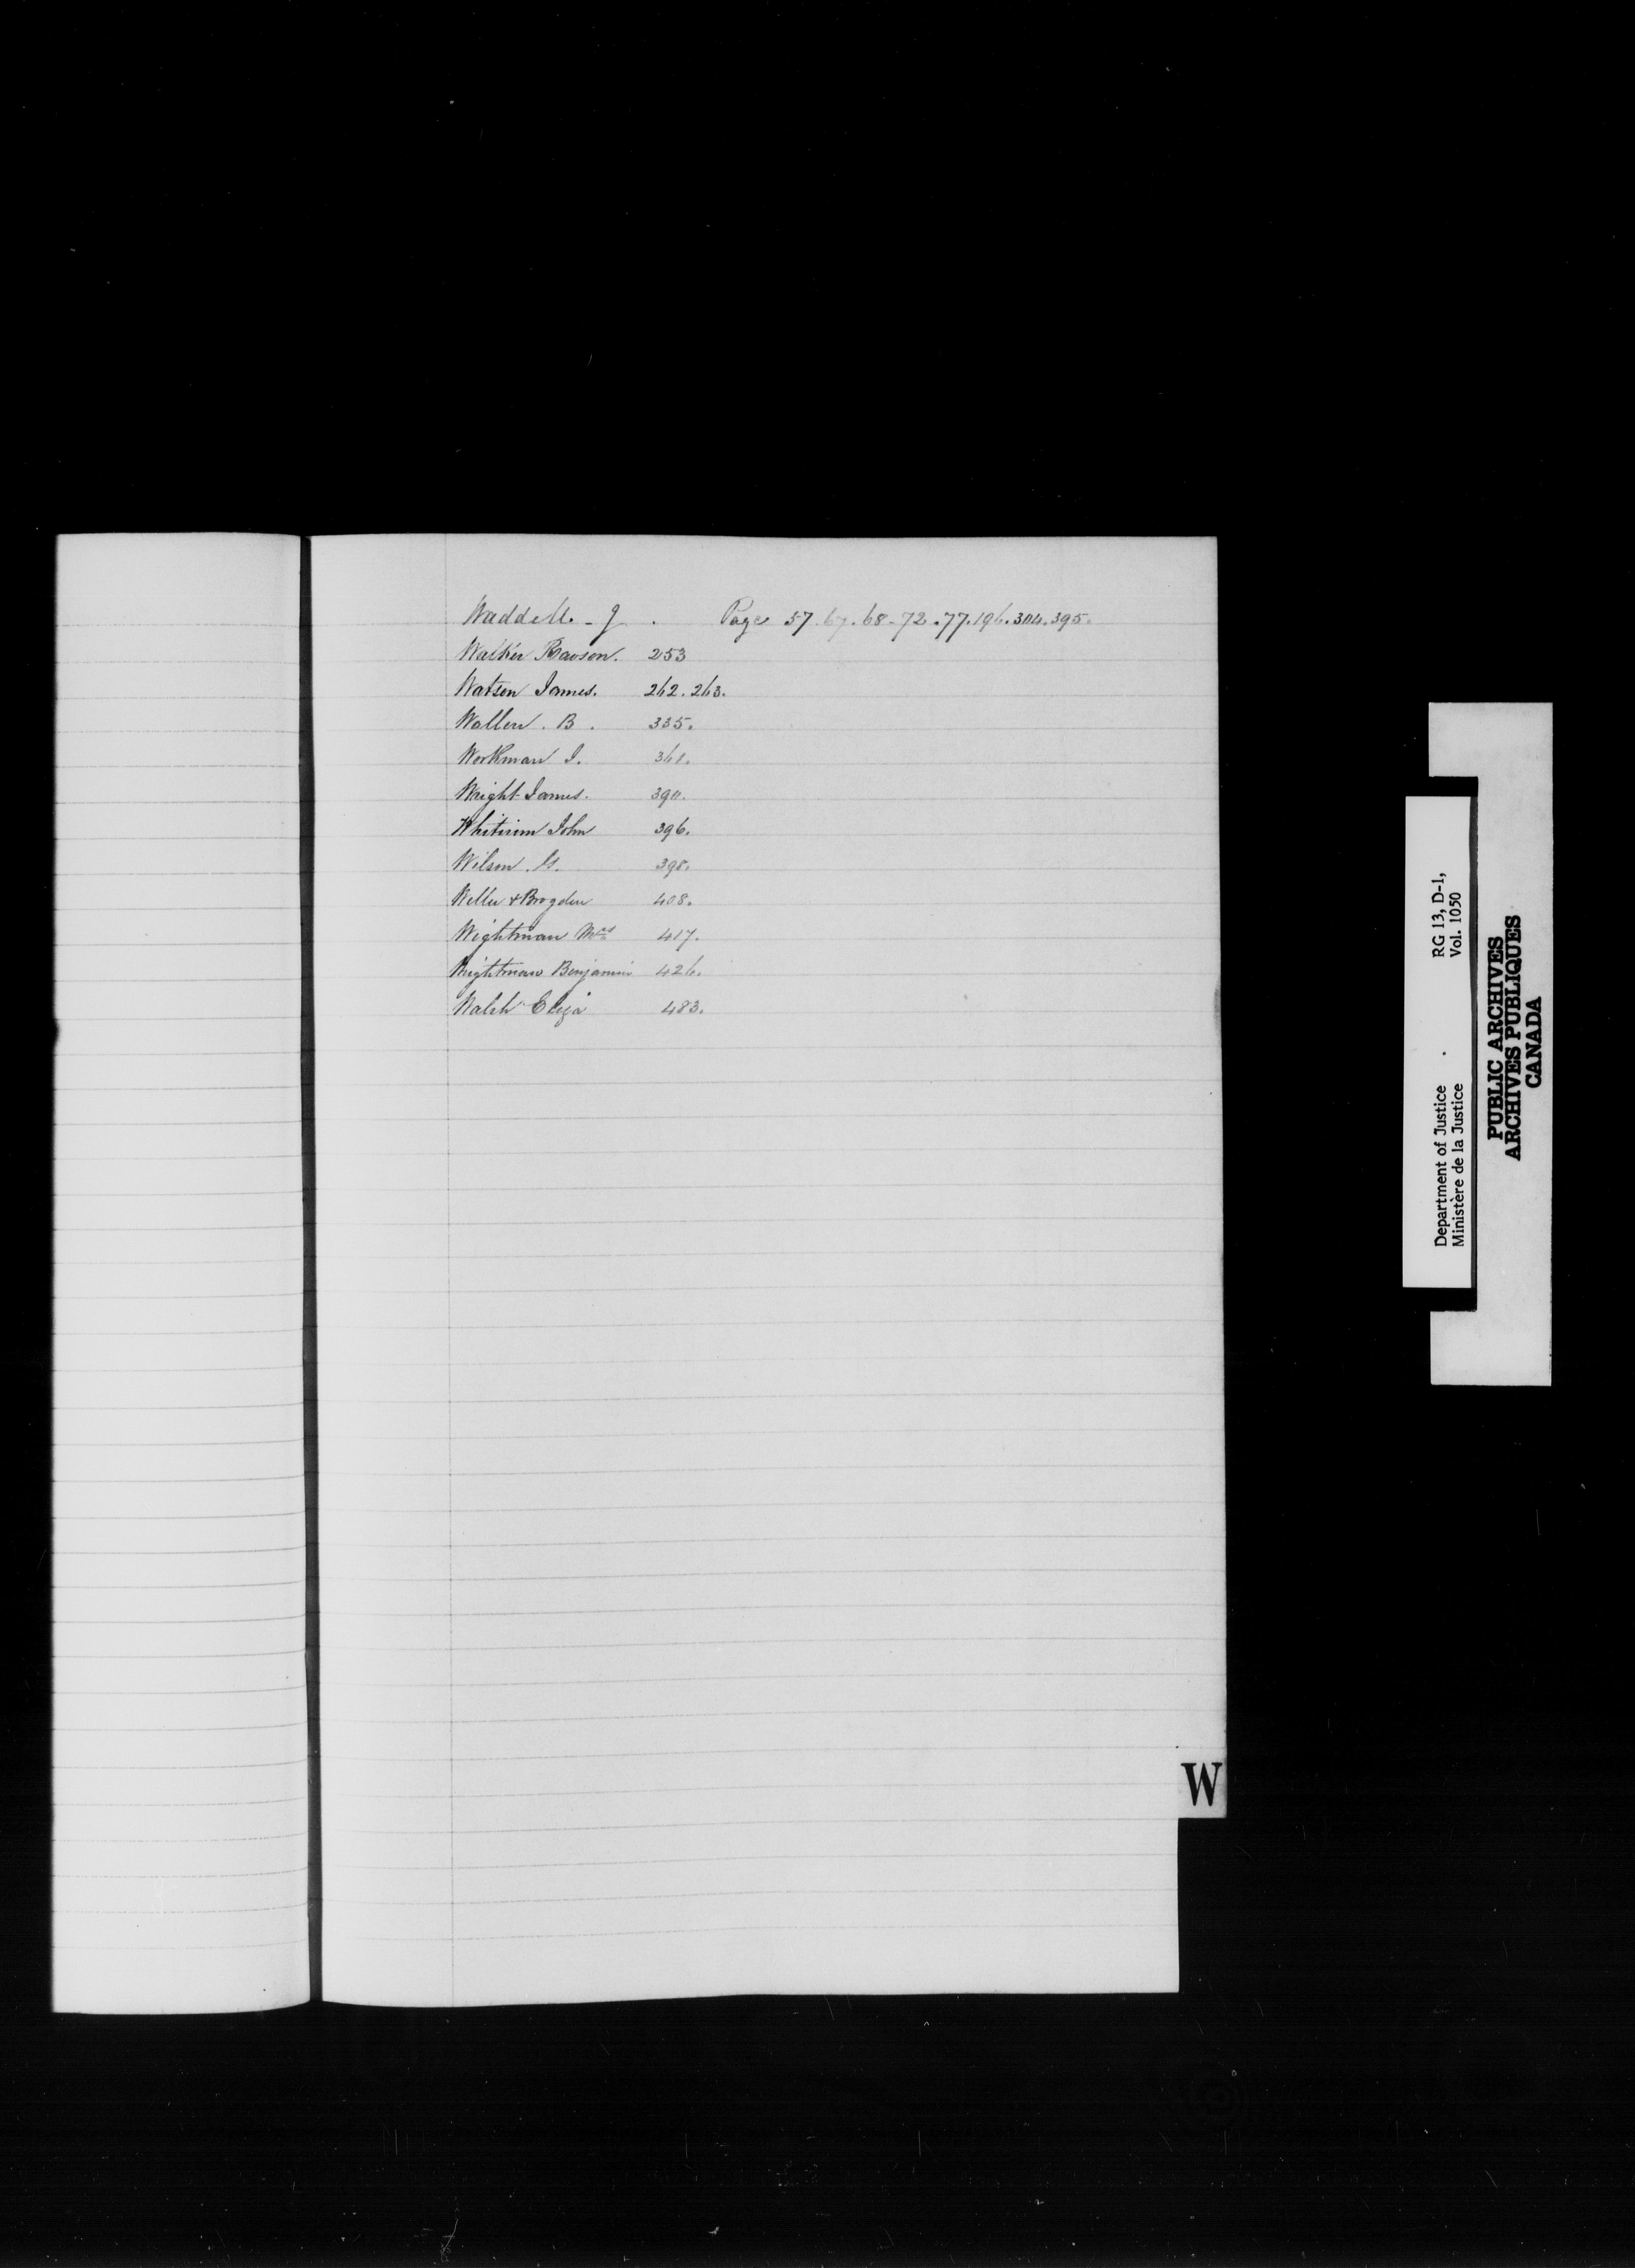 Waddell. - J. Page 57. 67. 68 - 72. 77. 196. 304. 395.
Walker Rawson. 253
Watson James. 262. 263.
Wallen. B. 335.
Workman J. 361.
Wright James. 390.
Whiteirim John 396.
Wilson. G. 398.
Weller & Brogden 408.
Wightman Mrs 417.
Wrightman Benjamin 426.
Walsh Eliza 483.
W
Department of Justice RG 13, D-1,
Ministère de la Justice Vol. 1050
PUBLIC ARCHIVES
ARCHIVES PUBLIQUES
CANADA